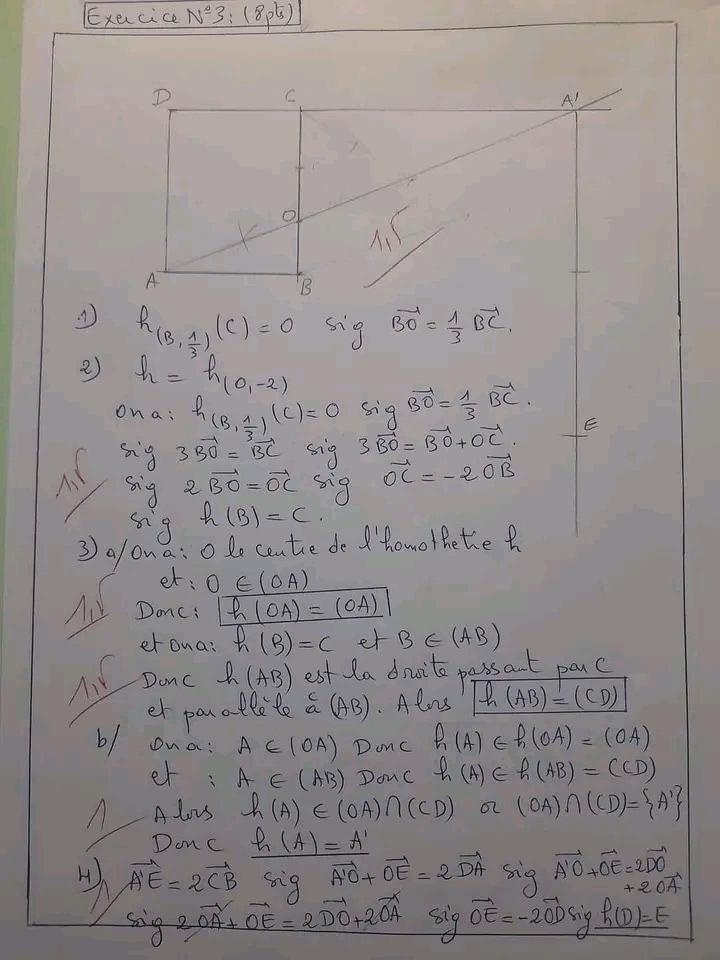 Exercice N°3: (8pts)
D C A'
O
1,5
A B
E
1) h(B, 1/3)(C) = O sig BO⃗ = 1/3 BC⃗.
2) h = h(O,-2)
On a: h(B, 1/3)(C) = O sig BO⃗ = 1/3 BC⃗.
sig 3BO⃗ = BC⃗ sig 3BO⃗ = BO⃗ + OC⃗.
1,5 sig 2BO⃗ = OC⃗ sig OC⃗ = -2OB⃗
sig h(B) = C.
3) a/ On a: O le centre de l'homothetie h
et: O ∈ (OA)
1,5 Donc: h(OA) = (OA)
et on a: h(B) = C et B ∈ (AB)
1,5 Donc h(AB) est la droite passant par C
et parallèle à (AB). Alors h(AB) = (CD)
b/ On a: A ∈ (OA) Donc h(A) ∈ h(OA) = (OA)
et : A ∈ (AB) Donc h(A) ∈ h(AB) = (CD)
1 Alors h(A) ∈ (OA)∩(CD) or (OA)∩(CD) = {A'}
Donc h(A) = A'
4) A'E⃗ = 2CB⃗ sig A'O⃗ + OE⃗ = 2DA⃗ sig A'O⃗ + OE⃗ = 2DO⃗
+ 2OA⃗
1 sig 2OA⃗ + OE⃗ = 2DO⃗ + 2OA⃗ sig OE⃗ = -2OD⃗ sig h(D) = E